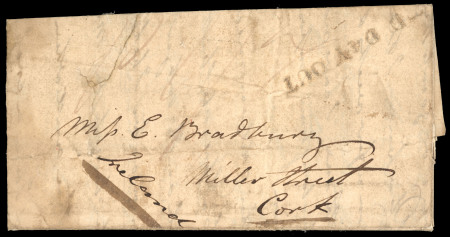 D DAY OUT
Miss E. Bradbury
Miller Street
Cork
Ireland